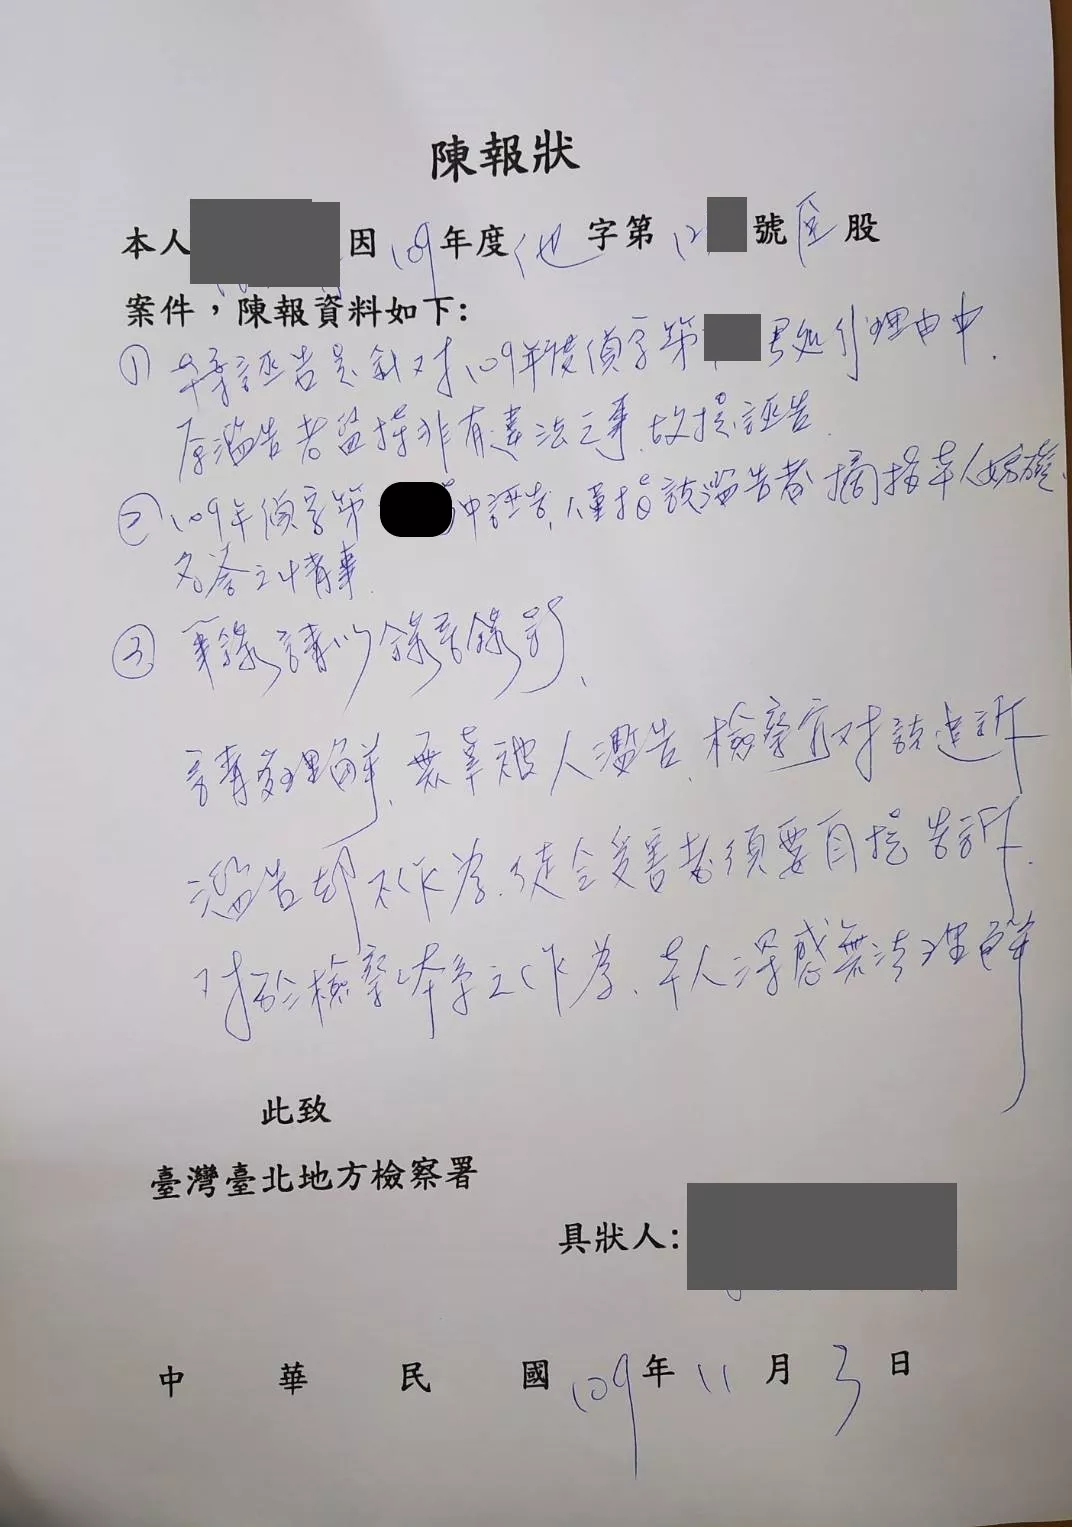 陳報狀
本人 因109年度他字第12 號 股
案件，陳報資料如下：
① 本案誣告是針對109年度偵字第 號處分理由中.
原濫告者並持非有違法之事.故提誣告.
② 109年偵字第 中誣告.僅指該濫告者摘指本人妨礙.
名益之情事.
③ 筆錄請以錄音錄影、
請理解.無辜被人濫告.檢察官對該
濫告卻不作為.徒令受害者須要自提告訴.
對於檢察體系之作為.本人深感無法理解
此致
臺灣臺北地方檢察署
具狀人：
中華民國109年11月3日